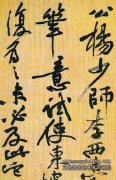 公楊少師李西
筆意試使東坡
復為之未必及此它